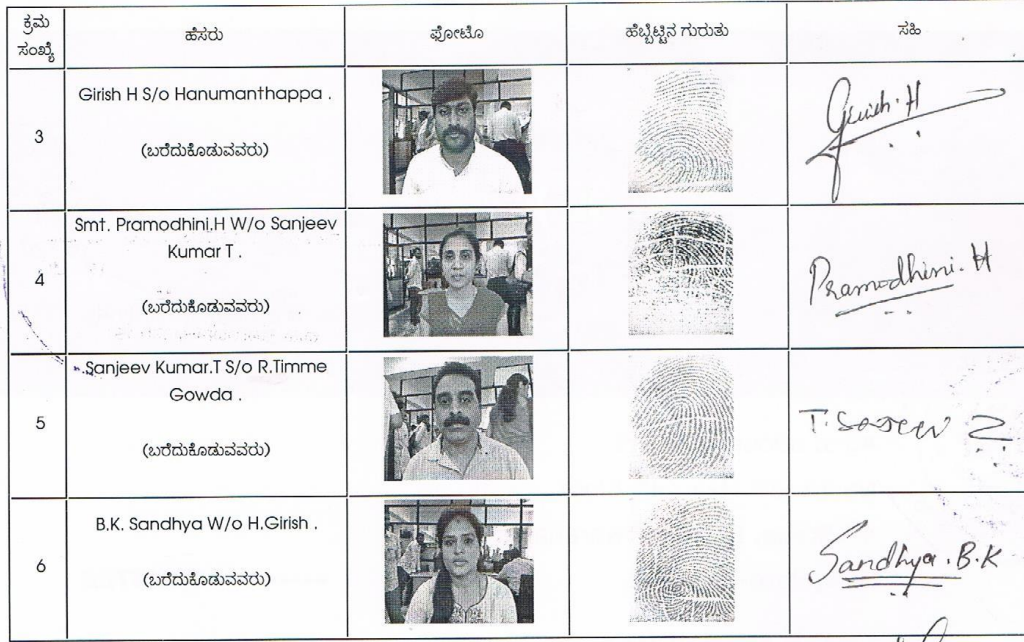 ಕ್ರಮ
ಸಂಖ್ಯೆ
ಹೆಸರು
ಫೋಟೊ
ಹೆಬ್ಬೆಟ್ಟಿನ ಗುರುತು
ಸಹಿ
3
Girish H S/o Hanumanthappa .
(ಬರೆದುಕೊಡುವವರು)
Girish.H
4
Smt. Pramodhini.H W/o Sanjeev
Kumar T .
(ಬರೆದುಕೊಡುವವರು)
Pramodhini.H
5
Sanjeev Kumar.T S/o R.Timme
Gowda .
(ಬರೆದುಕೊಡುವವರು)
6
B.K. Sandhya W/o H.Girish .
(ಬರೆದುಕೊಡುವವರು)
Sandhya.B.K